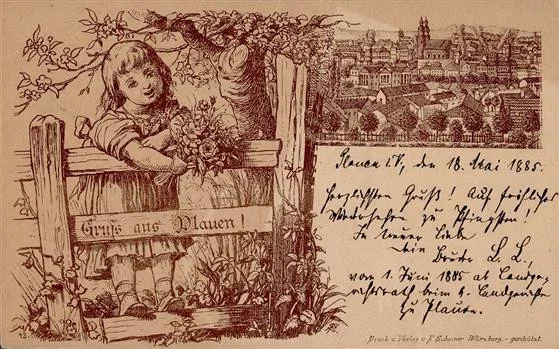 Gruss aus Plauen!
Plauen i. V., den 18. Mai 1885.
Herzlichsten Gruß! Auf fröhliches
Wiedersehen zu Pfingsten!
In treuer Liebe
dein Bruder L. L.,
vom 1. Juni 1885 ab Landge-
richtsrath beim k. Landgericht
zu Plauen.
Druck u. Verlag v. F. Scheiner Würzburg. - geschützt.